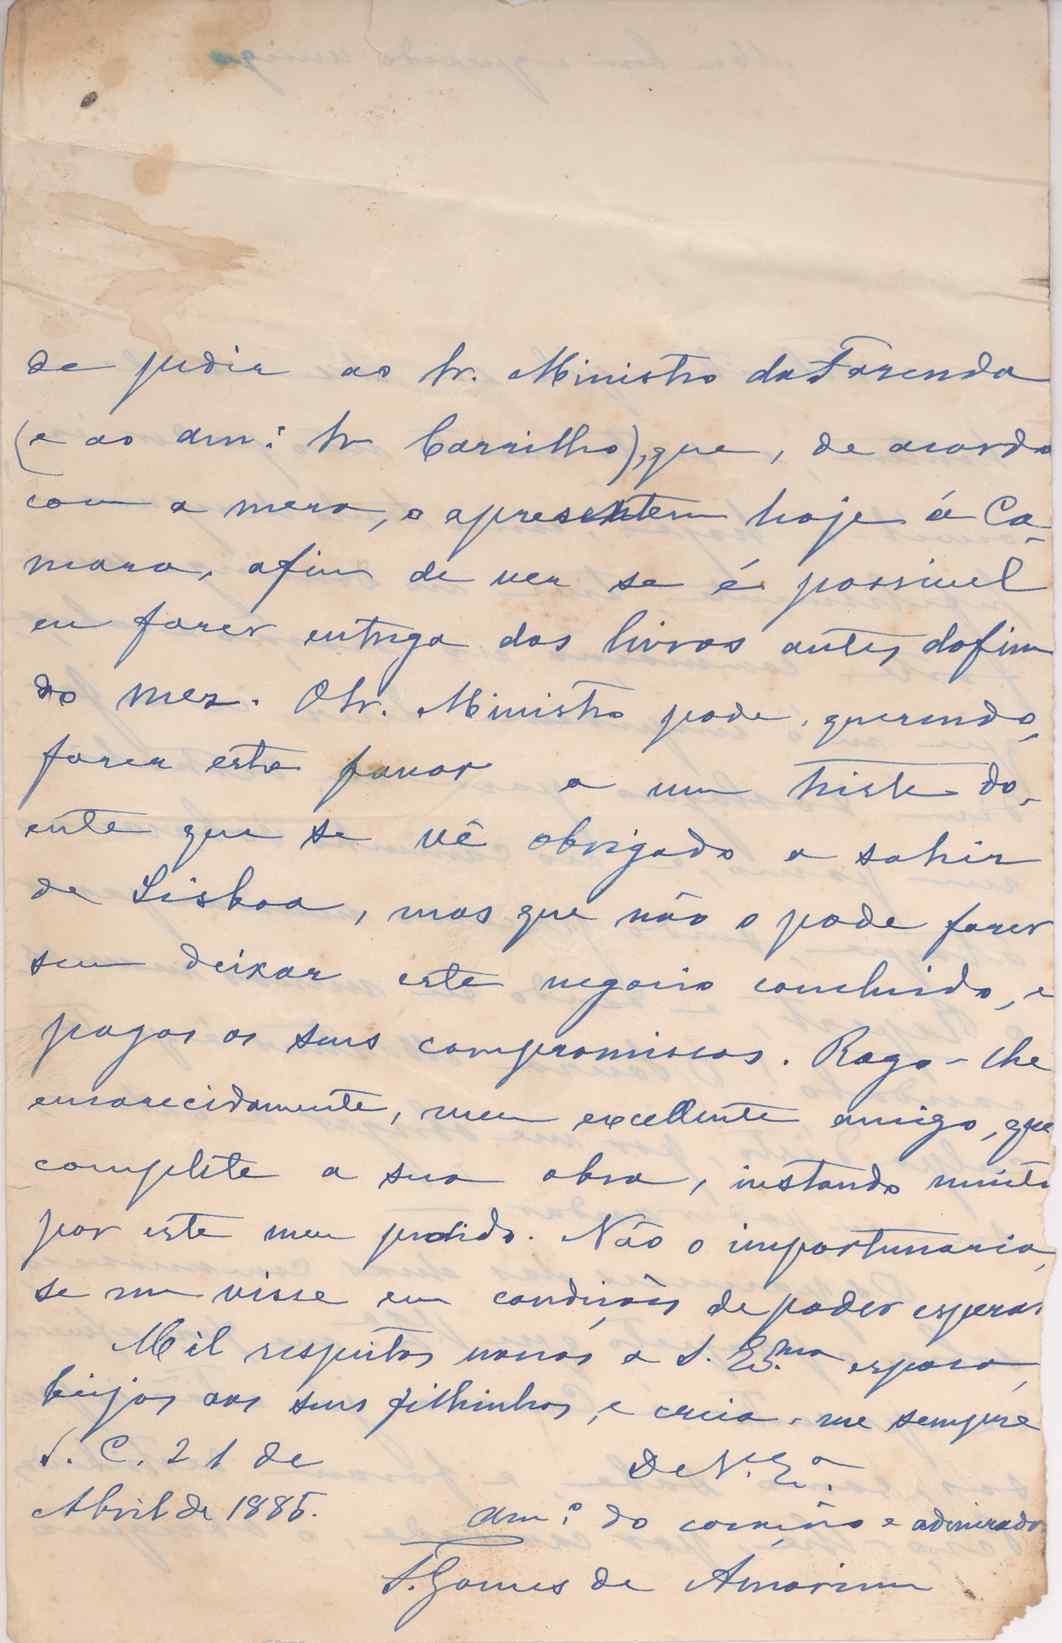 de pedir ao Sr. Ministro da Fazenda
(e ao am.º Sr Carrilho), que, de acordo
com a meza, o apresentem hoje á Ca-
mara, afim de ver se é possivel
eu fazer entrega dos livros antes do fim
do mez. O Sr. Ministro pode, querendo,
fazer este favor a um triste do-
ente que se vê obrigado a sahir
de Lisboa, mas que não o pode fazer
sem deixar este negocio concluido, e
pagos os seus compromissos. Rogo-lhe
encarecidamente, meu excellente amigo, que
complete a sua obra, instando muito
por este meu pedido. Não o importunaria,
se me visse em condições de poder esperar
Mil respeitos nossos a S. Ex.ma esposa,
beijos aos seus filhinhos, e creia-me sempre
S. C. 21 de
Abril de 1885.
De V. Ex.a
am.º do coração e admirador
F. Gomes de Amorim